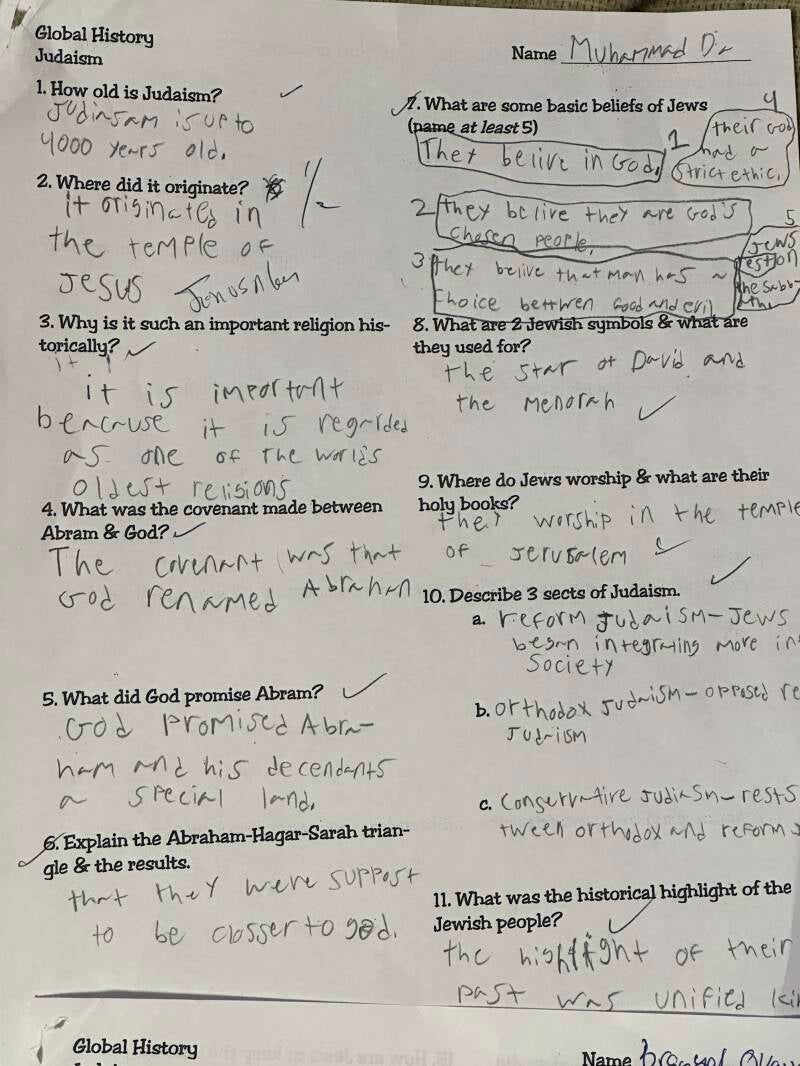 Global History
Judaism
Name Muhammad D
1. How old is Judaism?
Judinsam is up to
4000 years old.
2. Where did it originate? 1/2
it originated in
the temple of
Jesus
3. Why is it such an important religion his-
torically?
it is important
becnruse it is regarded
as one of the world's
oldest religions
4. What was the covenant made between
Abram & God?
The covenant was that
God renamed Abrahan
5. What did God promise Abram?
God promised Abra-
ham and his decendants
a special land.
6. Explain the Abraham-Hagar-Sarah trian-
gle & the results.
that they were suppost
to be closser to god.
7. What are some basic beliefs of Jews
(name at least 5)
1 They belive in God.
4 their God
had a
strict ethic.
2 they belive they are God's
chosen people.
3 they belive that man has a
choice bettwen Good and evil
5 Jews
the
8. What are 2 Jewish symbols & what are
they used for?
the star of David and
the menorah
9. Where do Jews worship & what are their
holy books?
they worship in the temple
of Jerusalem
10. Describe 3 sects of Judaism.
a. reform Judaism-Jews
began integrating more in
Society
b. orthodox Judaism-opposed re
Judaism
c. Conservative Judiasn-rests
tween orthodox and reform
11. What was the historical highlight of the
Jewish people?
the highlight of their
past was unified kin
Global History
Name